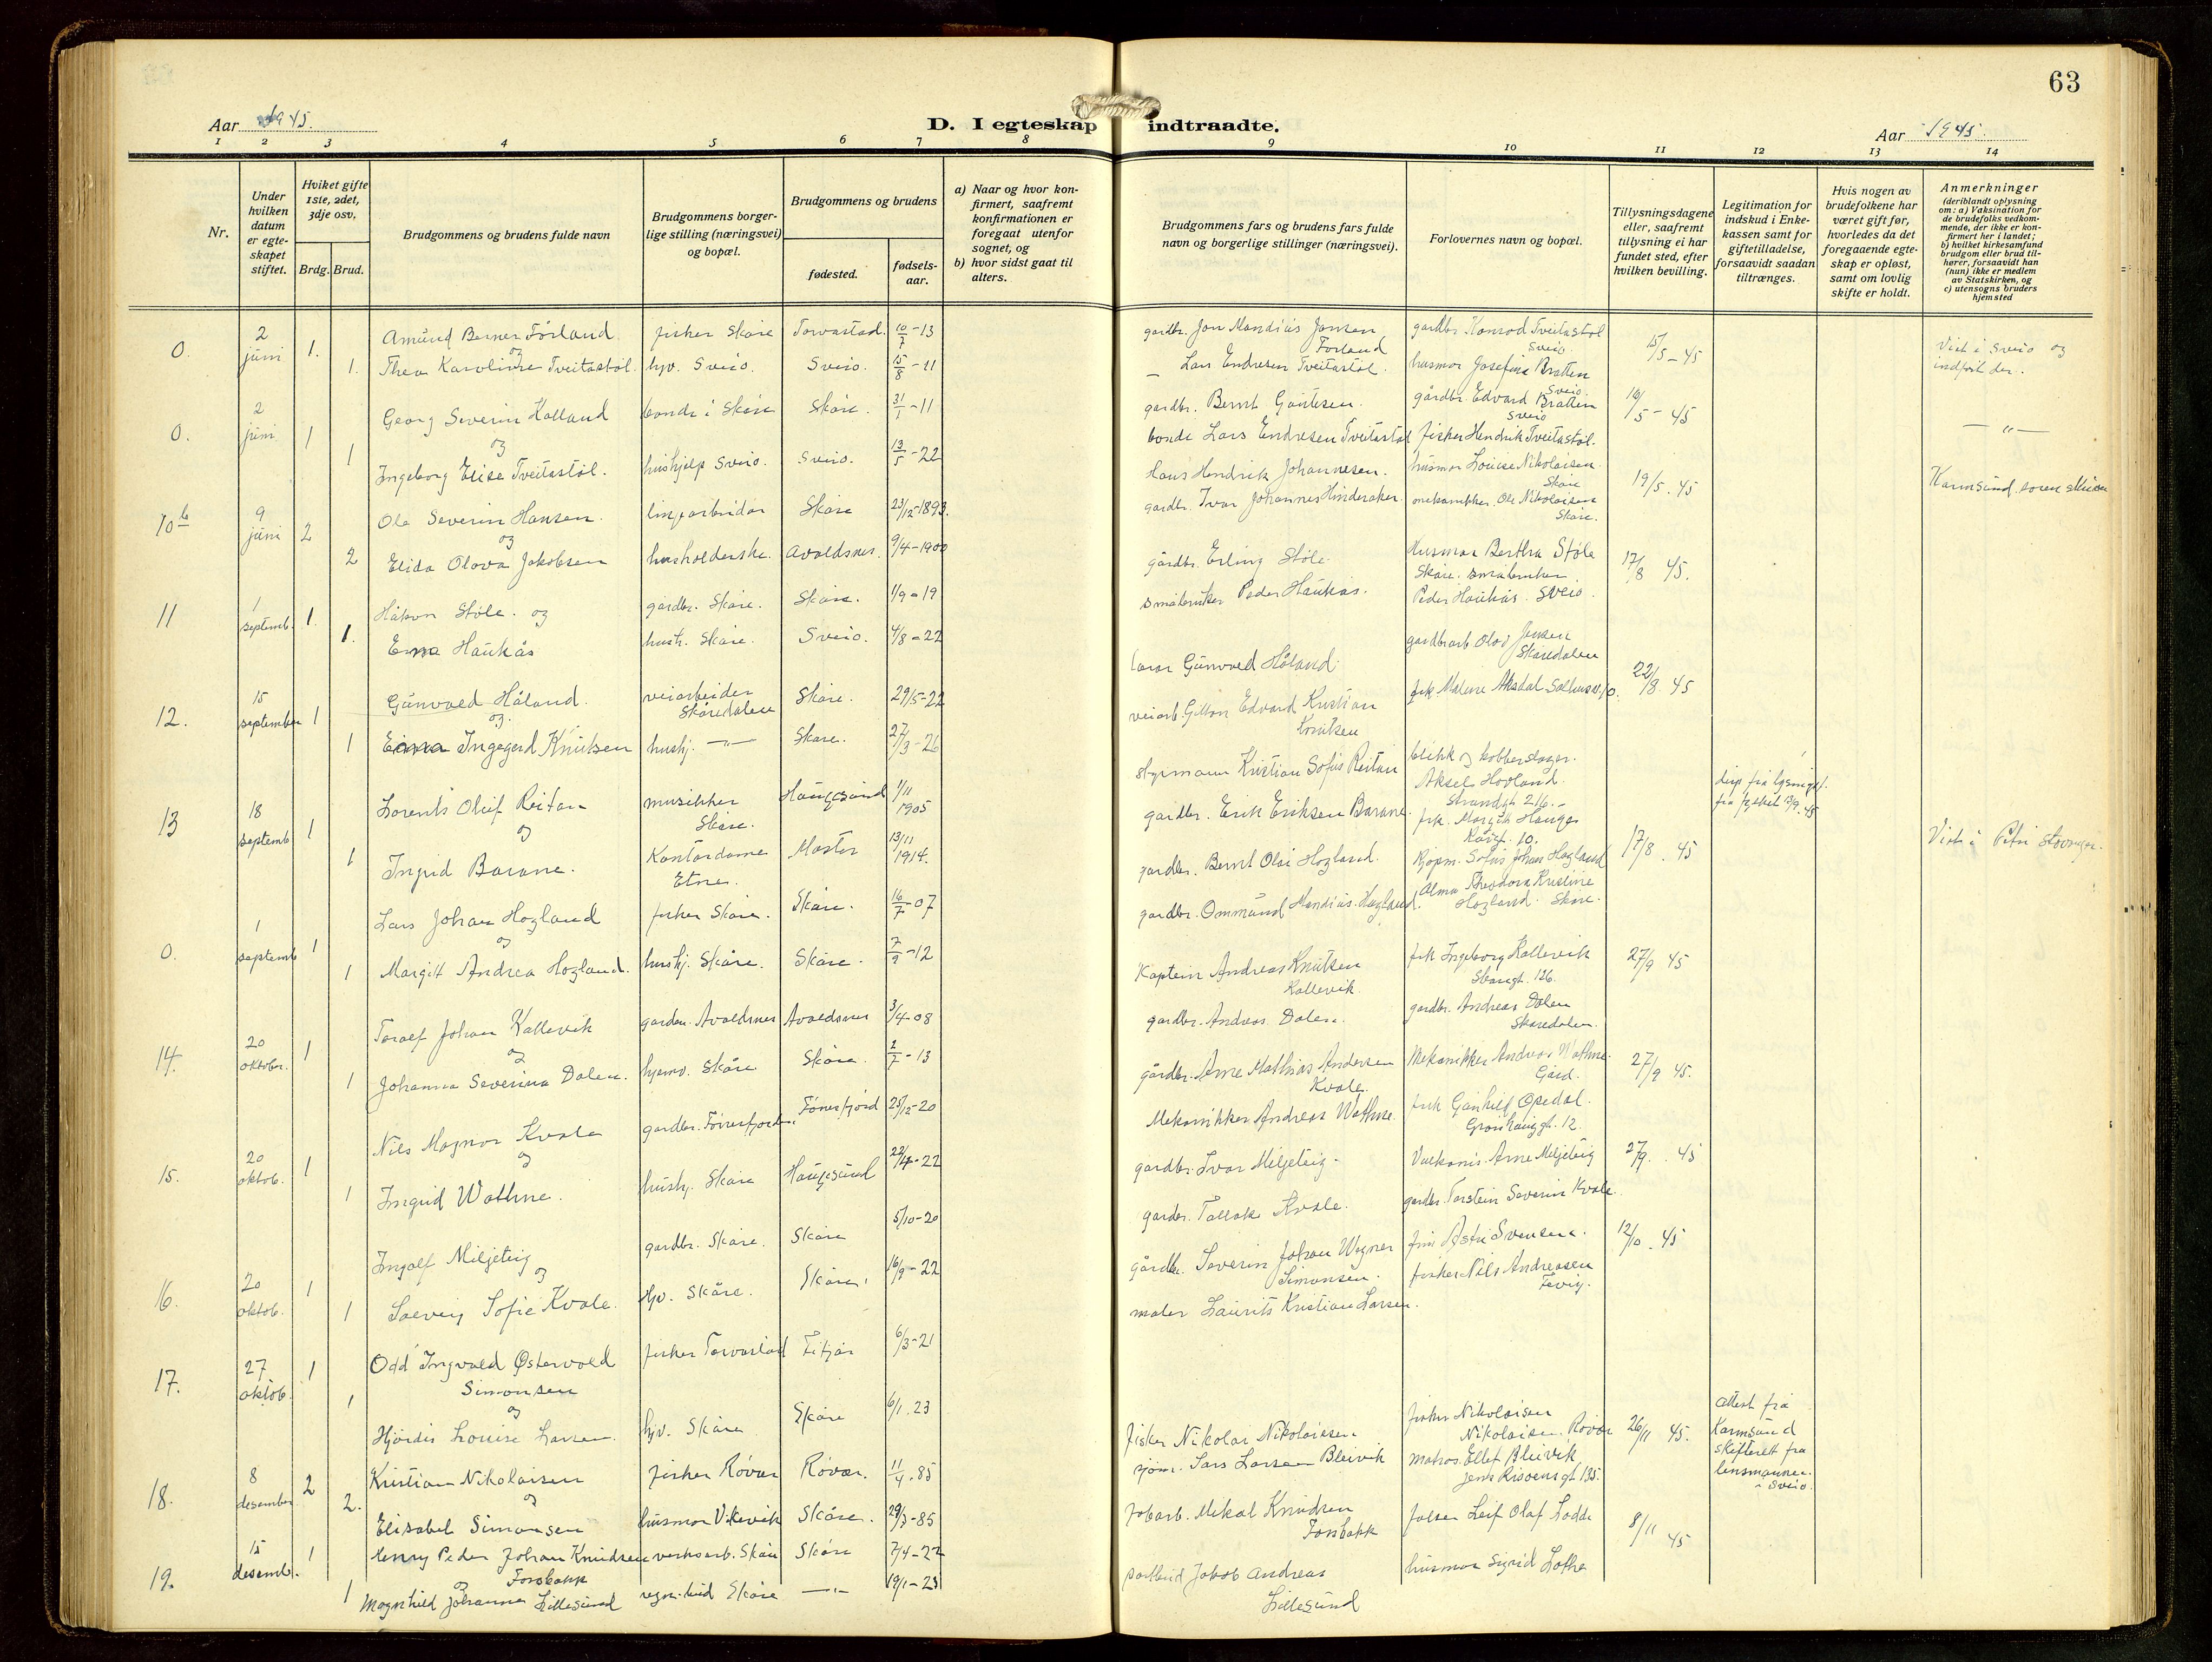 63
Aar 1945.
D. I egteskap indtraadte.
Aar 1945.
1 2 3 4 5 6 7 8 9 10 11 12 13 14
Nr.
Under hvilken datum er egteskapet stiftet.
Hviket gifte 1ste, 2det, 3dje osv.
Brdg. Brud.
Brudgommens og brudens fulde navn
Brudgommens borgerlige stilling (næringsvei) og bopæl.
Brudgommens og brudens
fødested.
fødselsaar.
a) Naar og hvor konfirmert, saafremt konfirmationen er foregaat utenfor sognet, og
b) hvor sidst gaat til alters.
Brudgommens fars og brudens fars fulde navn og borgerlige stillinger (næringsvei).
Forlovernes navn og bopæl.
Tillysningsdagene eller, saafremt tillysning ei har fundet sted, efter hvilken bevilling.
Legitimation for indskud i Enkekassen samt for giftetilladelse, forsaavidt saadan tiltrænges.
Hvis nogen av brudefolkene har været gift før, hvorledes da det foregaaende egteskap er opløst, samt om lovlig skifte er holdt.
Anmerkninger
(deriblandt oplysning om: a) Vaksination for de brudefolks vedkommende, der ikke er konfirmert her i landet;
b) hvilket kirkesamfund brudgom eller brud tilhører, forsaavidt han (hun) ikke er medlem av Statskirken, og
c) utensogns bruders hjemsted
0. 2 juni 1. Amund Berner Førland fisker Skåre Torvastad. 10/7-13 gardbr. Jon Mandius Jansen Førland gardbr Konrad Tveitastøl Sveio 15/5-45 Viet i Sveio og indført der.
og
1. Thea Karoline Tveitastøl. hjv. Sveio. Sveio. 15/8-11 — Lars Endresen Tveitastøl. husmor Josefine Bratten Sveio.
0. 2 juni 1 Georg Severin Halland bonde i Skåre Skåre. 31/1-11 gardbr. Bernt Gautesen. gårdbr. Edvard Bratten Sveio 16/5-45 — " —
og
1 Ingeborg Elise Tveitastøl. hushjelp Sveio. Sveio. 13/5-22 bonde Lars Endresen Tveitastøl fisker Hendrik Tveitastøl.
10b 9 juni 2 Ole Severin Hansen. Skåre 23/12-1893. Hans Hendrik Johannesen. husmor Louise Nikolaisen. Skåre 19/5. 45 Karmsund
og
2 Elida Olava Jakobsen husholderske. Avaldsnes. 9/4-1900 gardbr. Ivar Johannes Hinderaker. Ole Nikolaisen Skåre.
11 1 septemb. 1. Håkon Støle. og gårdbr. Skåre. Skåre. 1/9-19 gårdbr. Erling Støle. Husmor Bertha Støle Skåre. 17/8 45.
1. Erna Haukås hush. Skåre. Sveio. 4/8-22 småbruker Peder Haukås. småbruker Peder Haukås. Sveio.
12. 15 september 1 Gunvald Håland. veiarbeider Skåredalen Skåre. 29/5-22 Gunvald Håland. gardbrarb Olav Jensen Skåredalen 22/8. 45
og
1 Ingegerd Knutsen hushj. — " — Skåre. 27/3-26 veiarb. Edvard Kristian Knutsen frk Malene Aksdal
13 18 septemb 1 Lorents Oluf Reitan musikker Skåre. Haugesund 1/11 1905 styrmann Kristian Sofus Reitan blikk og kobberslager. Aksel Hovland. Strandgt 216.
og
1 Ingrid Barane. Kontordame Etne. Moster 13/11 1914. gardbr. Erik Eriksen Barane. frk. Margith Hauge
0. 1 septemb 1 Lars Johan Hogland fisker Skåre. Skåre. 16/7-07 gardbr. Bernt Olai Hogland. Kjøpm. Sofus Johan Hogland 17/8. 45 Viet i Petri Stavanger.
og
1 Margit Andrea Hogland. hushj. Skåre. Skåre. 7/9-12 gardbr. Ommund Mandius Hogland. Alma Theodora Kristine Hogland. Skåre.
14. 20 oktober. 1 Toralf Johan Kallevik Avaldsnes Avaldsnes 3/4-08 Kaptein Andreas Knutsen Kallevik frk Ingeborg Kallevik 27/9 45
og
1 Johanna Severina Dalen. hjemv. Skåre Skåre. 2/7-13 gardbr. Andreas Dalen. gardbr. Andreas Dalen Skåredalen.
15. 20 oktob. 1 Nils Magnor Kvale gardbr. Førresfjorden. Førresfjord 25/12-20 gårdbr. Arne Mathias Andersen Kvale. Mekanikker Andreas Wathne. Gard. 27/9 45.
og
1 Ingrid Wathne. hushj. Skåre Haugesund 22/4-22 Mekanikker Andreas Wathne. frk Gunhild Opedal.
16. 20 oktob. 1 Ingolf Miljeteig gardbr. Skåre. Skåre 5/10-20 gardbr. Ivar Miljeteig. Arne Miljeteig 27/9. 45
og
1 Solveig Sofie Kvale. hjv. Skåre. Skåre. 16/9-22 gardbr. Tallak Kvale. gardbr. Torstein Severin Kvale.
17. 27 oktob. 1 Odd Ingvald Østervold Simonsen fisker Torvastad Fitjar 6/3-21 gårdbr. Severin Johan Wagner Simonsen. Astri Svensen. 12/10. 45
og
1 Hjørdis Louise Larsen. hjv. Skåre Skåre 6/1. 23 maler Laurits Kristian Larsen. fisker Nils Andreasen
18. 8 desember 2 Kristian Nikolaisen fisker Røvær Røvær. 11/4. 85 fisker Nikolai Nikolaisen fisker Nikolaisen Nikolaisen. Røvær 26/11 45. attest fra Karmsund skifterett fra lensmannen i Sveio.
og
2. Elisabet Simonsen husmor Vikevik Skåre. 29/3-85 Lars Larsen Bleivik matros Ellef Bleivik
19. 15 desemb. 1 Henry Peder Johan Knudsen Fossbakk verksarb. Skåre Skåre 7/4-22 Mikal Knudsen Fossbakk Leif Olaf Lodde 8/11 45
og
1 Magnhild Johanna Lillesund Skåre — " — 19/1-23 Jakob Andreas Lillesund husmor Sigrid Lothe